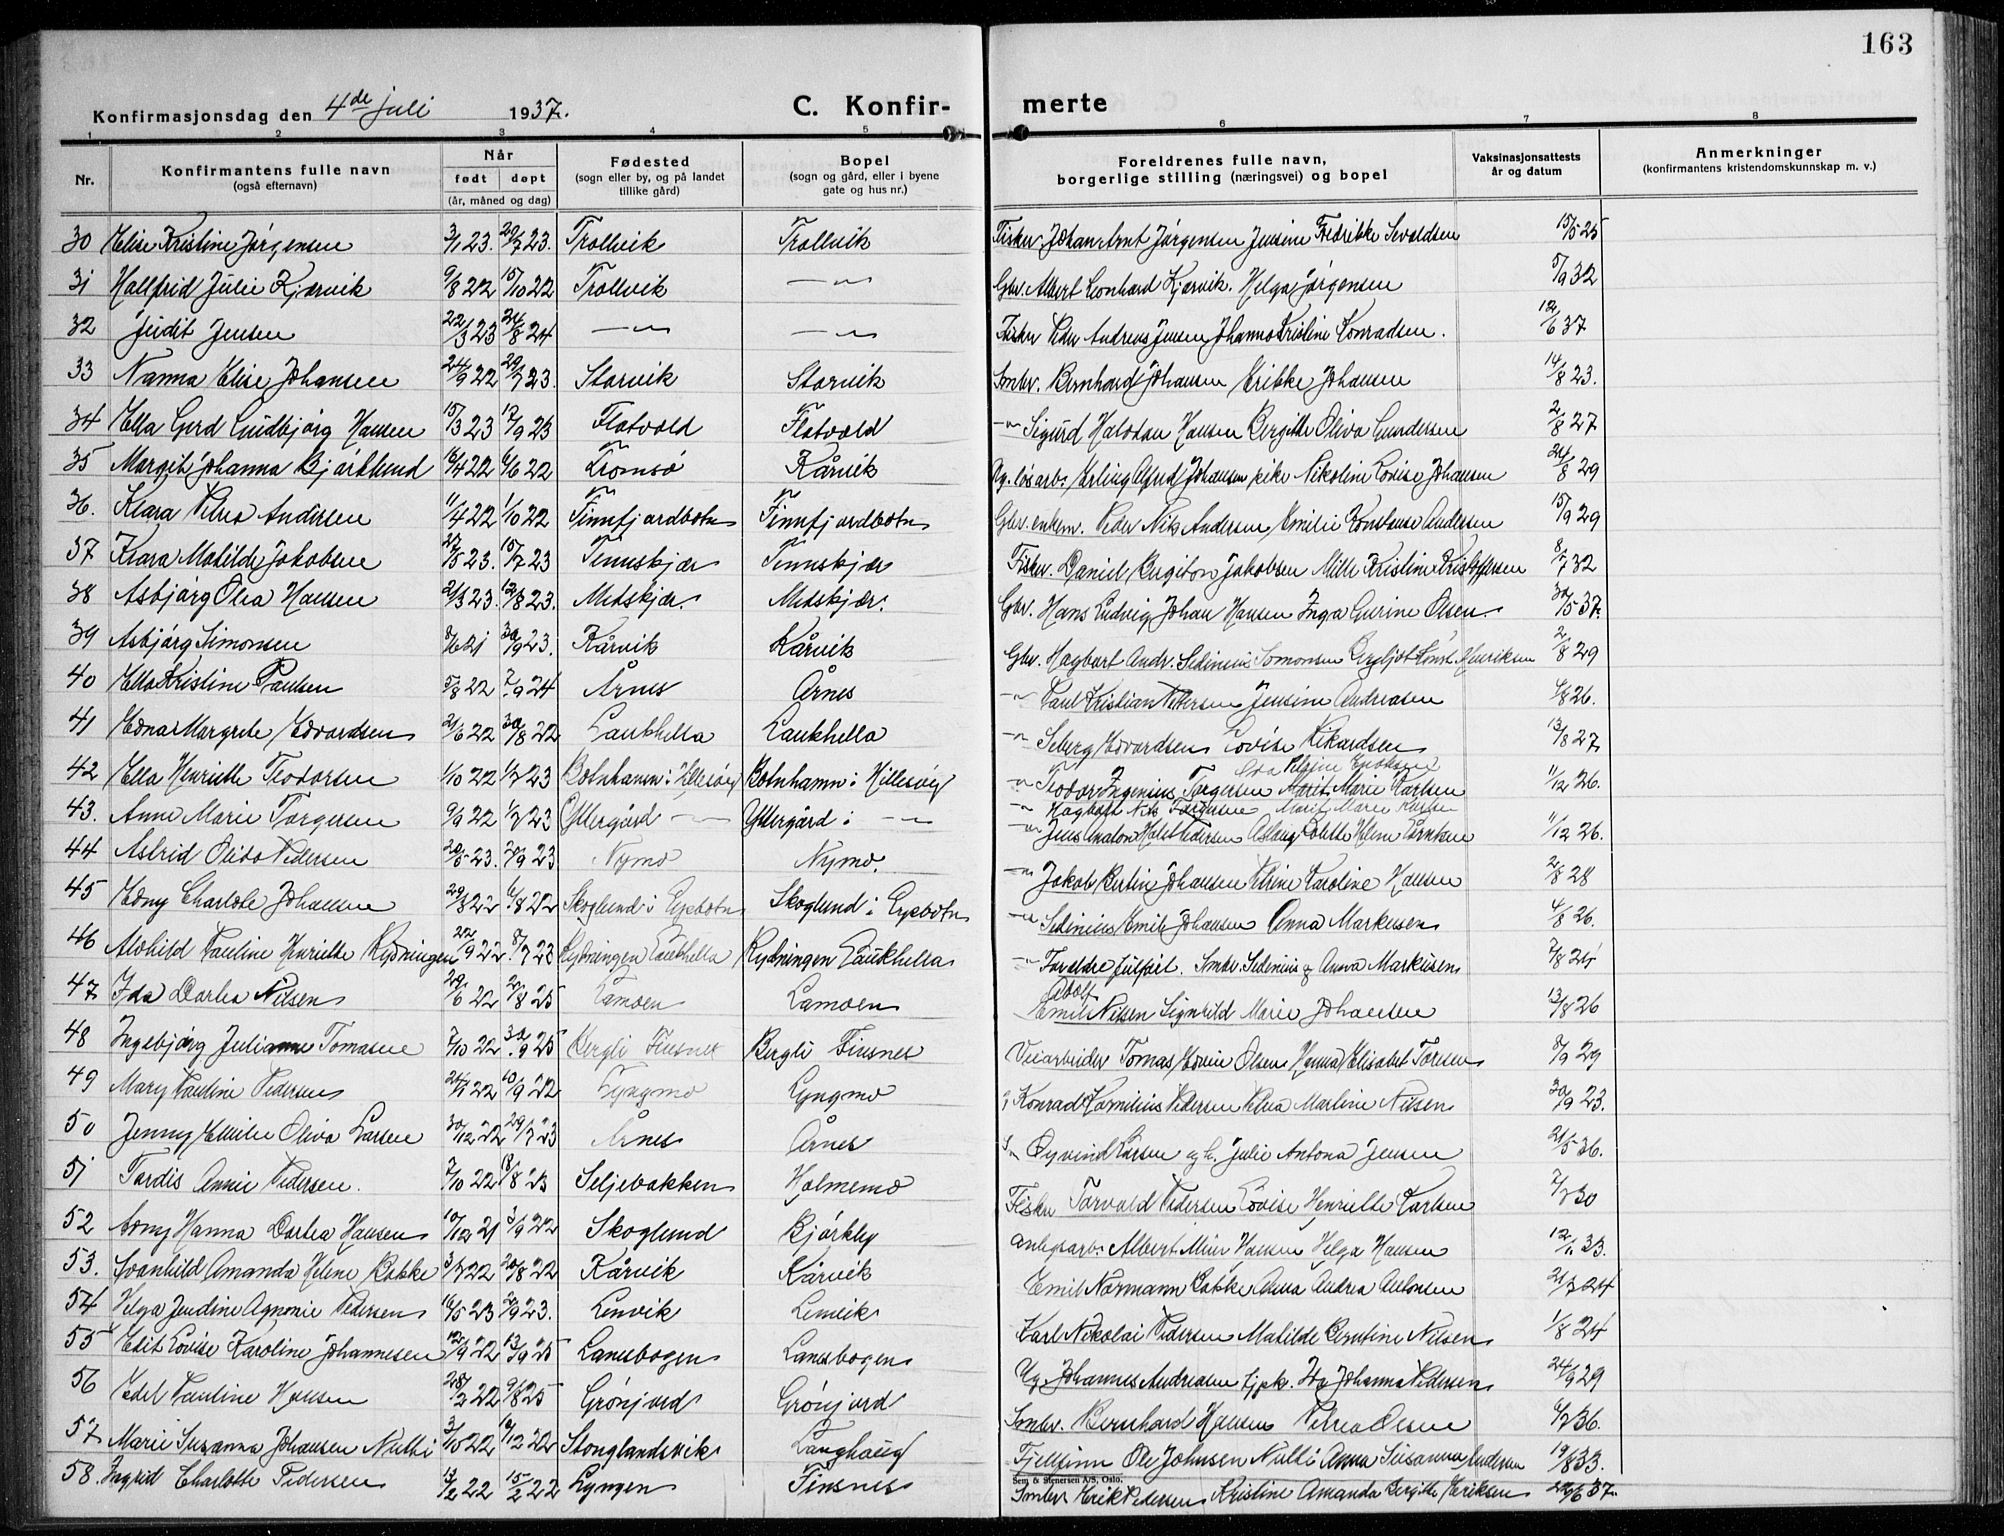 163
Konfirmasjonsdag den 4de juli 1937.
C. Konfir-
merte
1 2 3 4 5 6 7 8
Nr.
Konfirmantens fulle navn
(også efternavn)
Når
født døpt
(år, måned og dag)
Fødested
(sogn eller by, og på landet
tillike gård)
Bopel
(sogn og gård, eller i byene
gate og hus nr.)
Foreldrenes fulle navn,
borgerlige stilling (næringsvei) og bopel
Vaksinasjonsattests
år og datum
Anmerkninger
(konfirmantens kristendomskunnskap m. v.)
30 Elise Kristine Jørgensen 3/1 23. 29/7 23. Trollvik Trollvik Fisker Johan Arnt Jørgensen Jensine Fredrikke Sevaldsen 15/5 25
31 Hallfrid Julie Kjærvik 9/8 22 15/10 22 Trollvik —"— Gbr. Albert Leonhard Kjærvik. Helga Jørgensen 5/9 32
32 Judit Jensen 22/3 23 24/8 24 —"— —"— Fisker Peder Andreas Jensen Johanna Kristine Konradsen. 12/6 37
33 Nanna Elise Johansen 24/9 22 29/7 23. Storvik Storvik Smbr. Bernhard Johansen Erikke Johansen 14/8 23.
34 Ella Gerd Lindbjørg Hansen 15/3 23 17/9 23 Flatvold Flatvold —"— Sigurd Halvdan Hansen Bergitte Oliva Gundersen 2/8 27
35 Margit Johanna Bjørklund 18/4 22 6/6 22 Tromsø Kårvik Ug. løsarb. Erling Alfred Johansen pike Nikoline Lovise Johansen 24/8 29
36. Klara Petra Andersen 11/4 22 1/10 22 Finnfjordbotn Finnfjordbotn Gbr. enkem. Peder Nils Andersen Emilie Konstanse Andersen 15/9 29
37 Klara Matilde Jakobsen 27/5 23. 15/7 23 Tennskjær Tennskjær Fisker. Daniel Birgiton Jakobsen Mille Kristine Kristoffersen 8/7 32
38 Asbjørg Olea Hansen 21/3 23. 12/8 23. Metskjær. Metskjær. Gbr. Hans Ludvig Johan Hansen Inga Gurine Olsen. 30/5 37.
39 Asbjørg Simonsen 8/6 21 30/9 23. Kårvik Kårvik Gbr. Hagbart Andr. Sedinius Simonsen Bergljot Konst. Henriksen 2/8 29
40 Ella Kristine Paulsen 5/8 22 7/9 24 Årnes Årnes —"— Paul Kristian Pettersen Jensine Andreasen 4/8 26.
41 Edna Margrete Edvardsen 21/6 22 30/8 22 Laukhella Laukhella —"— Seberg Edvardsen Lovise Rikardsen 13/8 27
42 Ella Henriette Teodorsen 1/10 22 1/7 23 Botnhamn i Hillesøy Botnhamn i Hillesøy —"— Teodor Ingenius Torgersen Marit Marie Karlsen 11/12 26.
43. Anne Marie Torgersen 9/9 22 1/7 23 Yttergård —"— Yttergård i —"— —"— Hagbart Nils Torgersen Marit Marie Karlsen
44 Astrid Olida Pedersen 20/5 23. 2/9 23 Nymo Nymo. —"— Jens Anaton Hålet Pedersen Aslaug Kolette Helene 11/12 26.
45 Edny Charlote Johansen 29/3 22 6/8 22 Skoglund i Gisbotn Skoglund i Gisbotn —"— Jakob Bertin Johansen Petrine Karoline Hansen 2/8 28
46 Alvhild Pauline Henriette Rydningen 22/9 22. 8/7 23 Rydningen Laukhella Rydningen Laukhella —"— Sedinius Emil Johansen Anna Markusen 4/8 26.
47 Ida Dortea Nilsen 29/6 22 2/8 25 Lamoen Lamoen —"— Foreldre Smbr. Sedenius og Anna Markusen 7/8 24
Adolf
48 Ingebjørg Julianne Tomasen 7/10 22 30/9 25 Bergli Finsnes Bergli Finsnes Emil Nilsen Signhild Marie Johansen 13/8 26
49 Mary Pauline Pedersen 24/7 22 10/9 22 Lyngmo Lyngmo Veiarbeider Tomas Edvin Olsen Hanna Elisabet Toresen 8/9 29
50 Jenny Emilie Oliva Larsen 30/12 22 29/7 23 Årnes Årnes Konrad Kornilius Pedersen Petra Martine Nilsen 30/9 23.
51 Tordis Annie Pedersen. 7/10 22 18/8 23 Seljebakken Holmemo Øyvind Larsen og h. Julie Antona Jensen 21/5 36.
52 Edny Hanna Dortea Hansen 10/12 21 3/9 22 Skoglund Bjørkly Fisker Torvald Pedersen Lovise Henriette Karlsen 7/7 30
53. Svanhild Amanda Helene Bakke 3/7 22 20/8 22 Kårvik Kårvik Anlegsarb. Albert Meier Hansen Helga Hansen 12/11 33.
54 Helga Jendine Agnonie Pedersen 16/5 23 2/9 23. Lenvik Lenvik Emil Normann Bakke Anna Andrea Antonsen 21/7 24
55 Edit Lovise Karoline Johannesen 12/9 22 13/9 25 Lanesbogen Lanesbogen Karl Nikolai Pedersen Matilde Berntine Nilsen 1/8 24
56 Edel Pauline Hansen 28/2 22 9/8 25 Grønjord Grønjord Ug. Johannes Andreasen tjpk. Ida Johanna Pedersen 24/9 29
57 Marie Suzanna Johansen Nutti 3/10 22 10/12 22 Stonglandsvik Langhaug Smbr. Bernhard Hansen Petrea Olsen 6/7 36.
58. Ingrid Charlotte Pedersen 13/2 22 15/2 22 Lyngen Finsnes Fjellfinn Ole Johnsen Nutti Anna Susanna Andersen 19/8 33.
Sem & Stenersen A/S, Oslo.
Smbr Erik Pedersen Kristine Amanda Bergitte Eriksen 29/6 37.